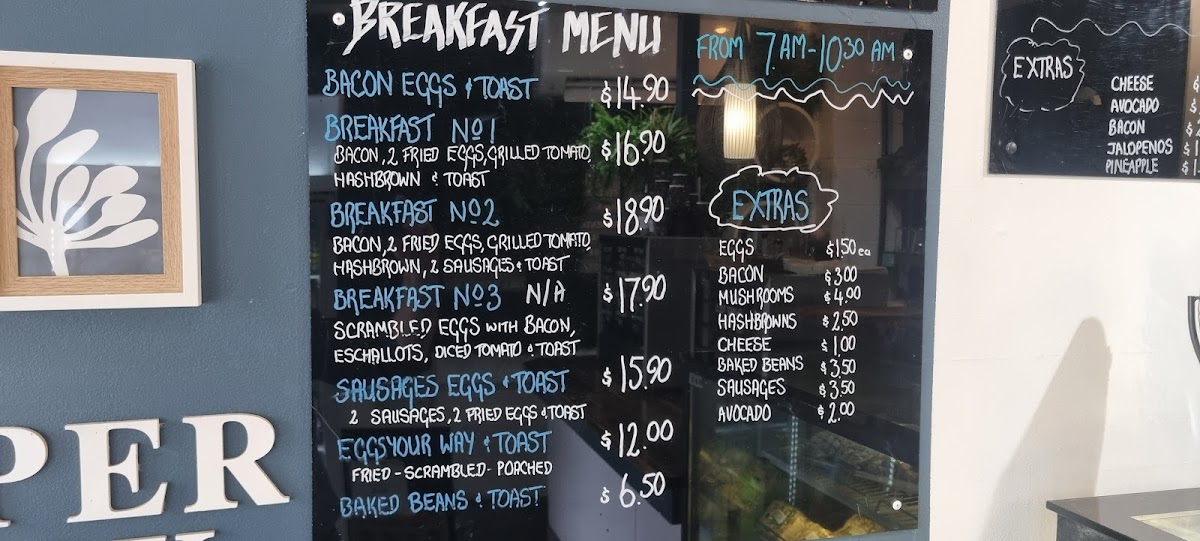 BREAKFAST MENU
FROM 7AM-10:30 AM
BACON EGGS & TOAST $14.90
BREAKFAST No1 $16.90
BACON, 2 FRIED EGGS, GRILLED TOMATO,
HASHBROWN & TOAST
BREAKFAST No2 $18.90
BACON, 2 FRIED EGGS, GRILLED TOMATO,
HASHBROWN, 2 SAUSAGES & TOAST
BREAKFAST No3 N/A $17.90
SCRAMBLED EGGS WITH BACON,
ESCHALLOTS, DICED TOMATO & TOAST
SAUSAGES EGGS & TOAST $15.90
2 SAUSAGES, 2 FRIED EGGS & TOAST
EGGS YOUR WAY & TOAST $12.00
FRIED - SCRAMBLED - POACHED
BAKED BEANS & TOAST $6.50
EXTRAS
EGGS $1.50 ea
BACON $3.00
MUSHROOMS $4.00
HASHBROWNS $2.50
CHEESE $1.00
BAKED BEANS $3.50
SAUSAGES $3.50
AVOCADO $2.00
EXTRAS
CHEESE
AVOCADO
BACON
JALOPENOS
PINEAPPLE
PER